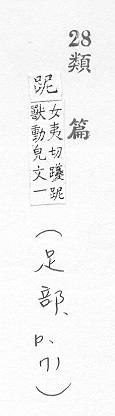 28類篇
跜
女夷切躨跜
獸動皃文一
（足部、p.71）